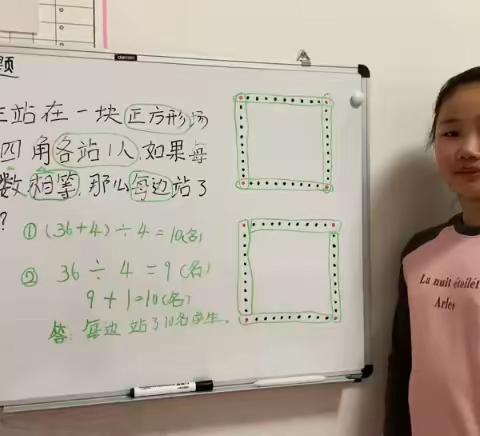 题
站在一块正方形场
四角各站1人,如果每
数相等,那么每边站了
?
①(36+4)÷4=10(名)
② 36÷4=9(名)
9+1=10(名)
答:每边站了10名学生。
La nuit étoilée
Arles